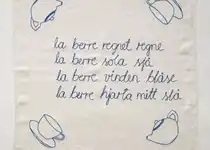 la berre regnet regne
la berre sola sjå
la berre vinden blåse
la berre hjarta mitt slå